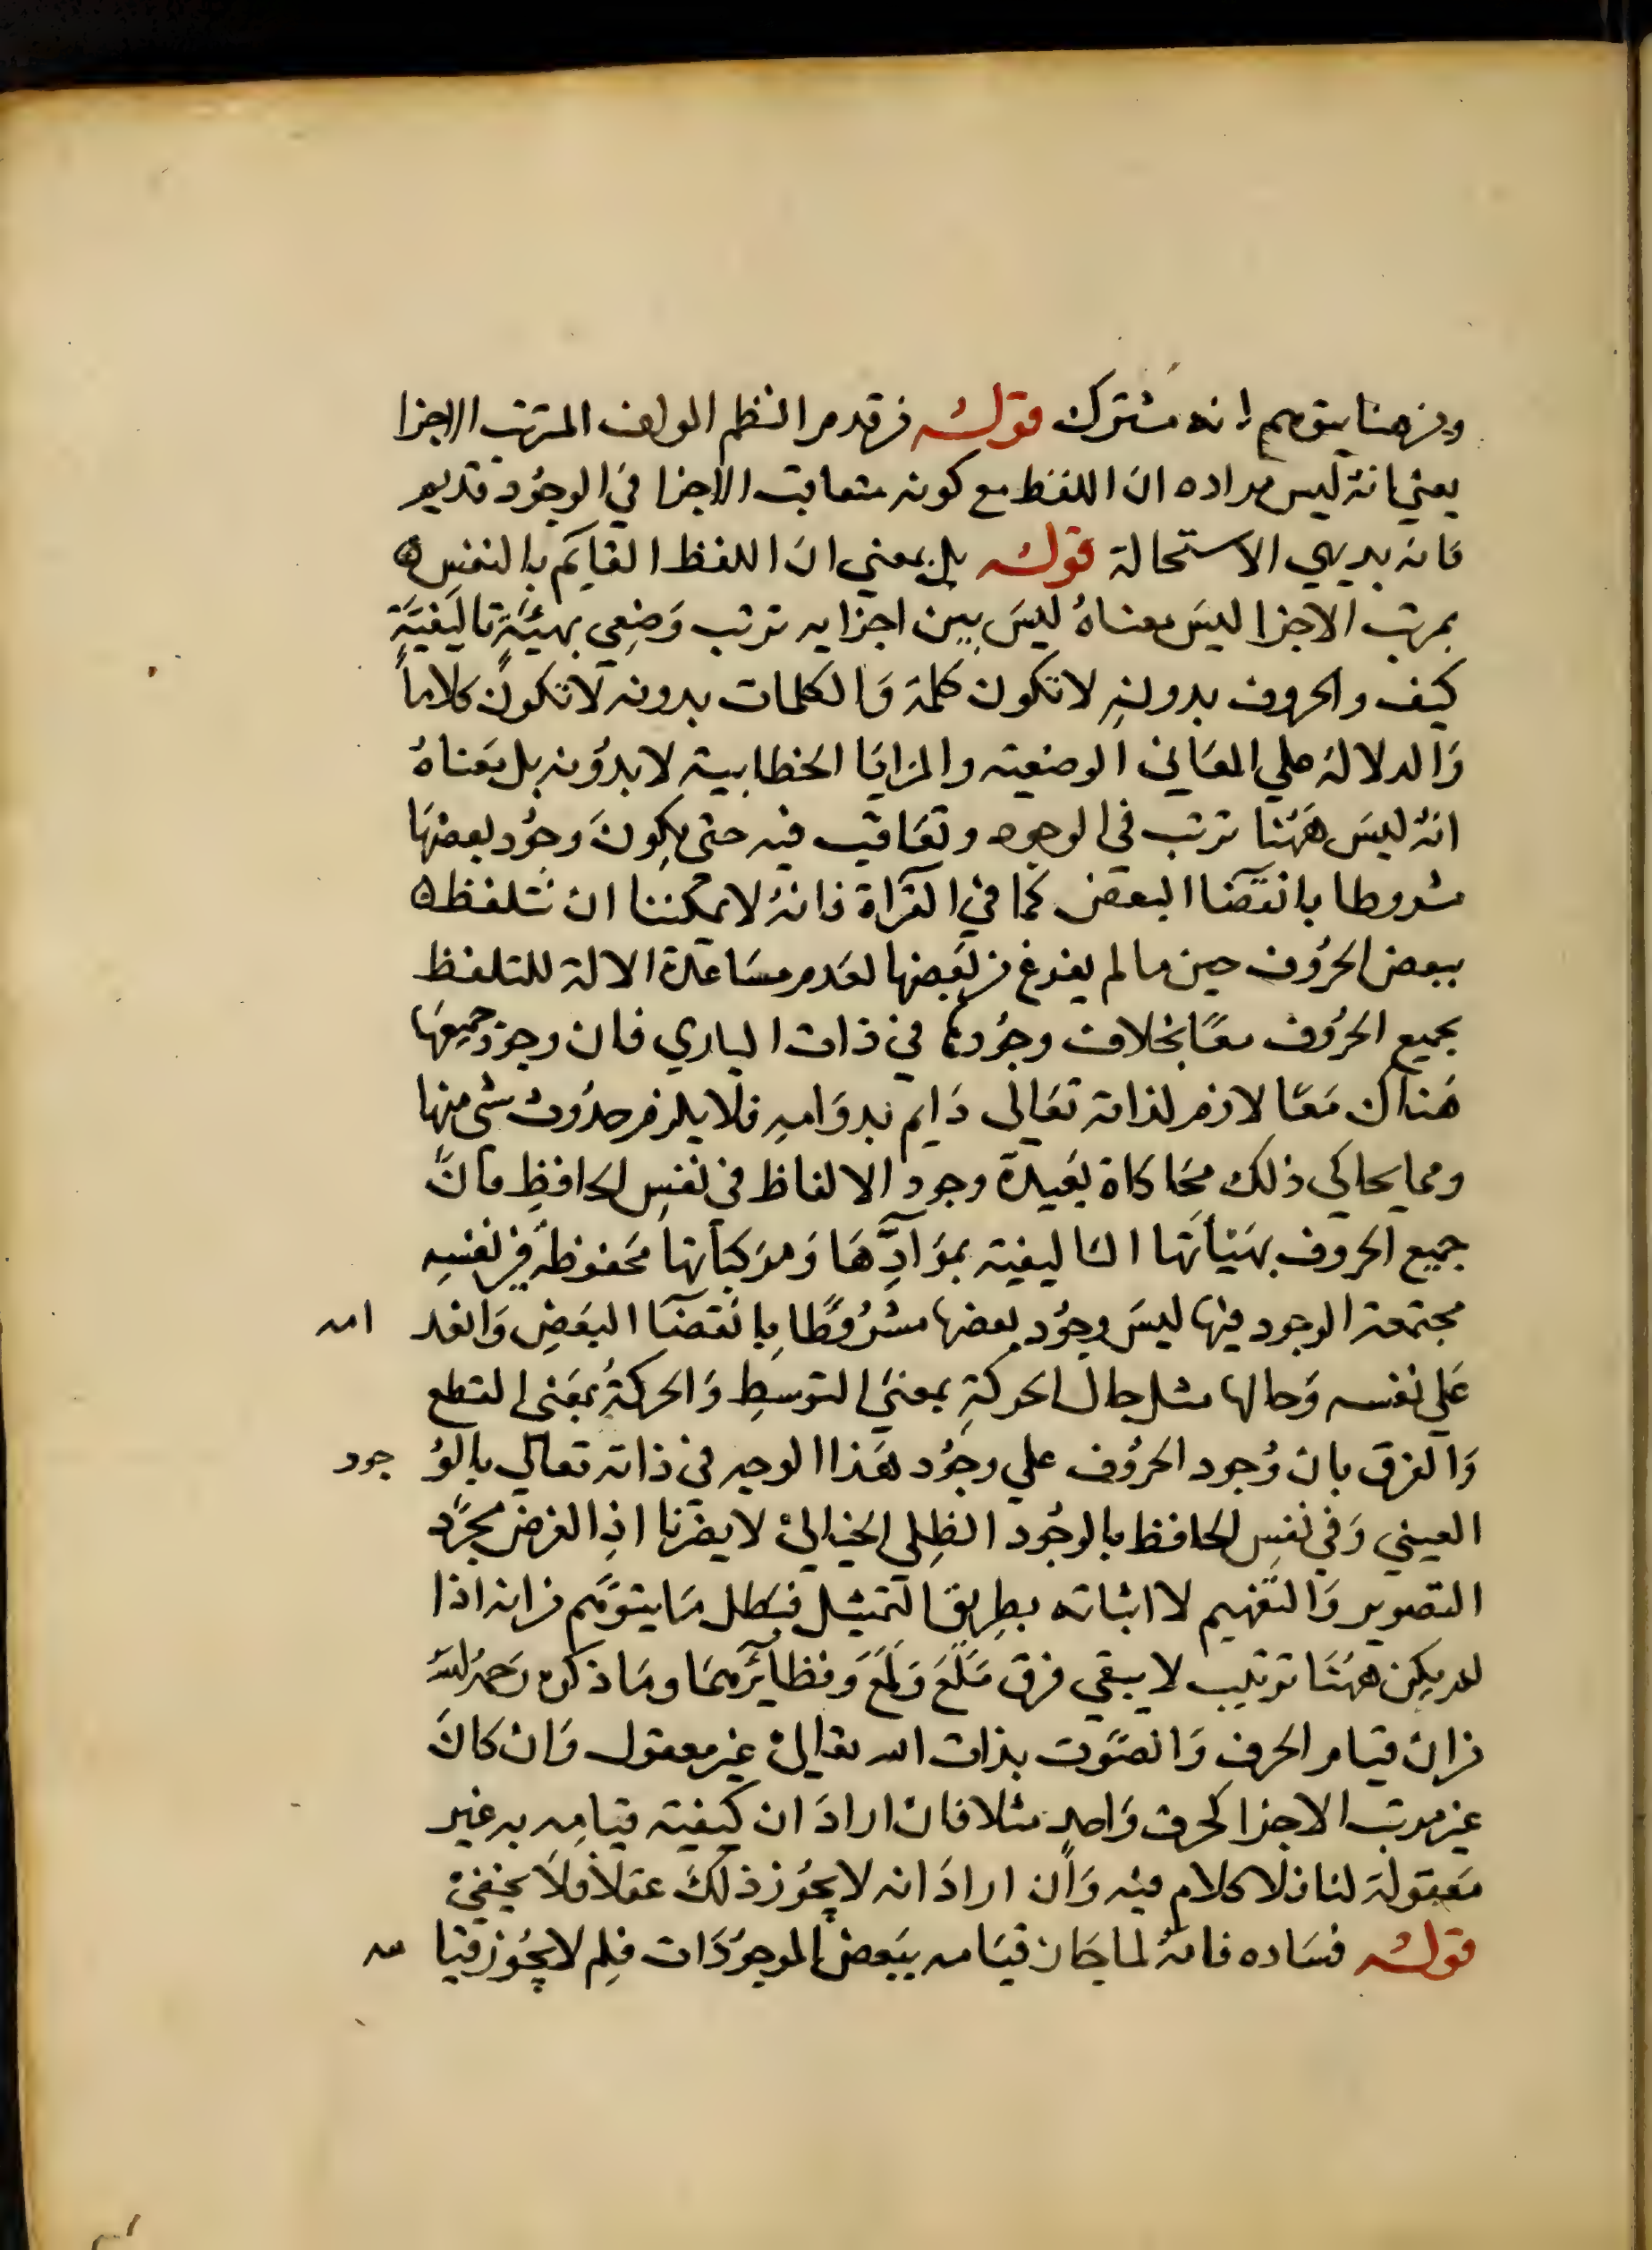 ومن هنا يتوهم انه مشترك قوله من قدم النظم المولف المترتب الاجزا
يعني انه ليس مراده ان اللفظ مع كونه متعاقب الاجزا في الوجود قديم
فانه بديهي الاستحالة قوله بل بمعني ان اللفظ القايم بالنفس
بمرتب الاجزا ليس معناه ليس بين اجزايه ترتب وضعي بهيئة تاليفية
كيف والحروف بدونه لا تكون كلمة والكلمات بدونه لا تكون كلاماً
والدلالة علي المعاني الوضعية والمزايا الخطابية لا بدونه بل معناه
انه ليس ههنا ترتب في الوجود وتعاقب فيه حتي يكون وجود بعضها
مشروطا بانقضا البعض كما في القراة فانه لا يمكننا ان نتلفظ
ببعض الحروف حين ما لم يفرغ من بعضها لعدم مساعدة الالة للتلفظ
بجميع الحروف معًا بخلاف وجودها في ذات الباري فان وجود جميعها
هناك معًا لازم لذاته تعالي دايم بدوامه فلا يلزم حدوث شي منها
ومما يحاكي ذلك محاكاة بعيدة وجود الالفاظ في نفس الحافظ فان
جميع الحروف بهيئاتها التاليفية بموادّها ومركباتها محفوظة في نفسه
مجتمعة الوجود فيها ليس وجود بعضها مشروطًا بانقضا البعض وانعد امه
علي نفسه وحالها مثل حال الحركة بمعني التوسط والحركة بمعني القطع
والفرق بان وجود الحروف علي وجود هذا الوجه في ذاته تعالي بالو جود
العيني وفي نفس الحافظ بالوجود الظلي الخيالي لا يضرنا اذ الغرض مجرّد
التصوير والتفهيم لا اثباته بطريق التمثيل فبطل ما يتوهّم من انه اذا
لم يكن ههنا ترتيب لا يبقي فرق ملع ولمع ونظايرهما وما ذكره رحمه الله
من ان قيام الحرف والصّوت بذات الله تعالي غير معقول وان كان
غير مرتب الاجزا كحرف واحد مثلا فان اراد ان كيفية قيامه به غير
معقولة لنا فلا كلام فيه وان اراد انه لا يجوز ذلك عقلا فلا يخفي
قوله فساده فانه لما جاز قيامه ببعض الموجودات فلم لا يجوز قيا مه